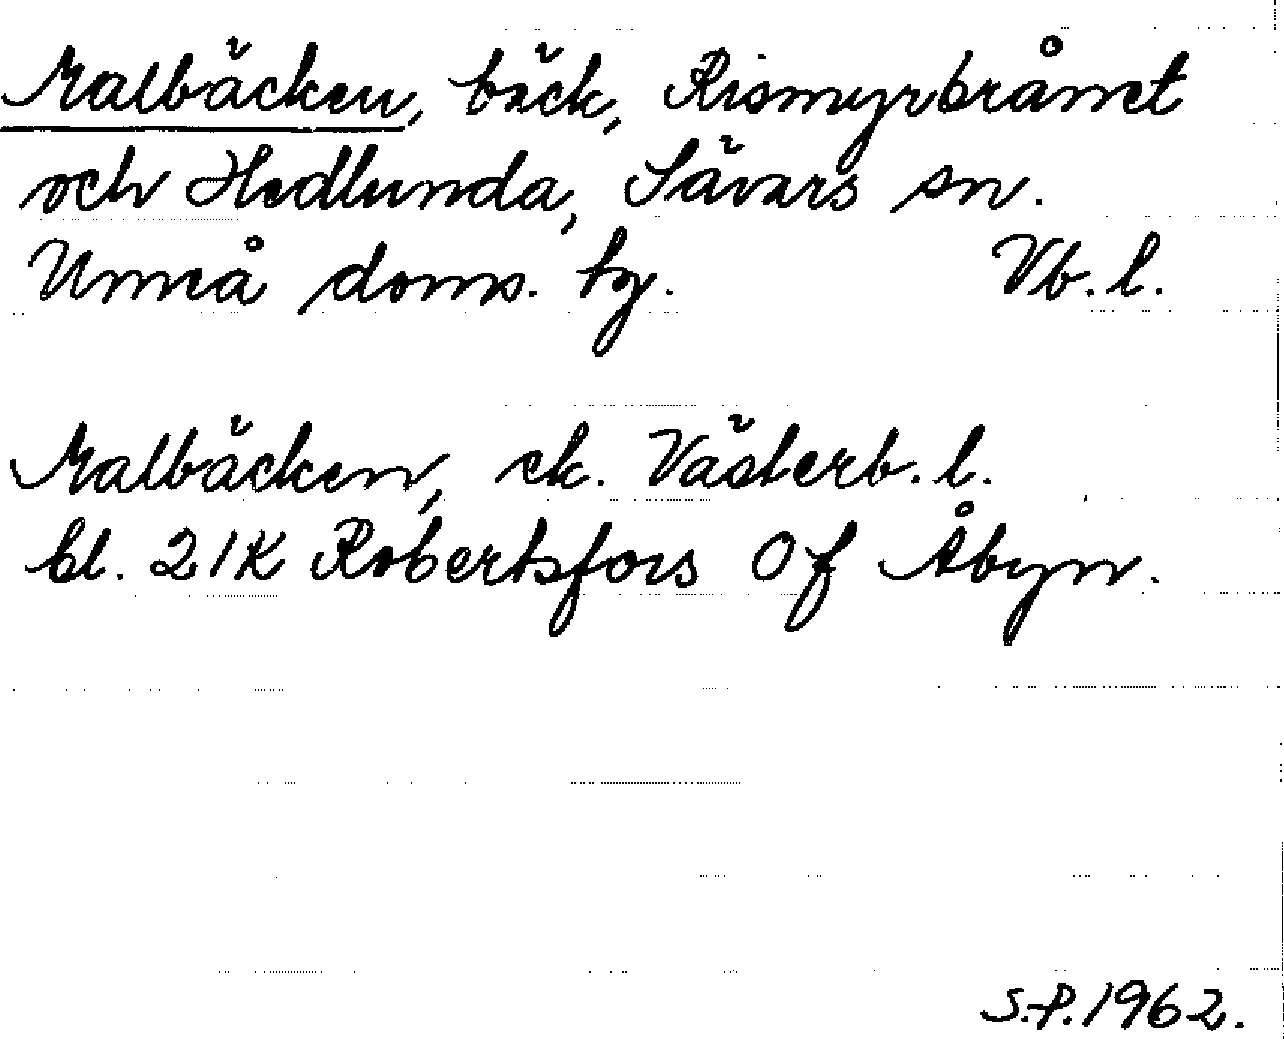 Malbäcken, bäck, Rismyrbrånet
och Hedlunda, Sävars sn.
Umeå doms. tg. Vb. l.
Malbäcken, ek. Västerb. l.
bl. 21K Robertsfors 0f Åbyn.
S.P. 1962.